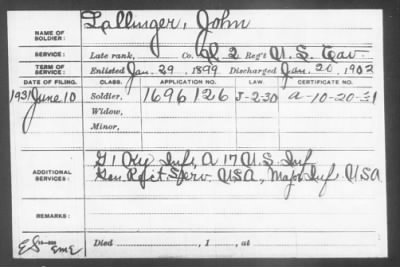 NAME OF SOLDIER: Lallinger, John
SERVICE: Late rank, Co. 2 Reg't U.S. Cav.
TERM OF SERVICE: Enlisted Jan. 29, 1899 Discharged Jan. 20, 1902
DATE OF FILING. CLASS. APPLICATION NO. LAW. CERTIFICATE NO.
1931 June 10 Soldier, 1696126 J-2-30 A-10-20-31
Widow,
Minor,
ADDITIONAL SERVICES: G 1 Ky Inf, A 17 U.S. Inf
Gen. Rec't. Serv. USA, Major Inf. USA
REMARKS:
Died , 1 , at